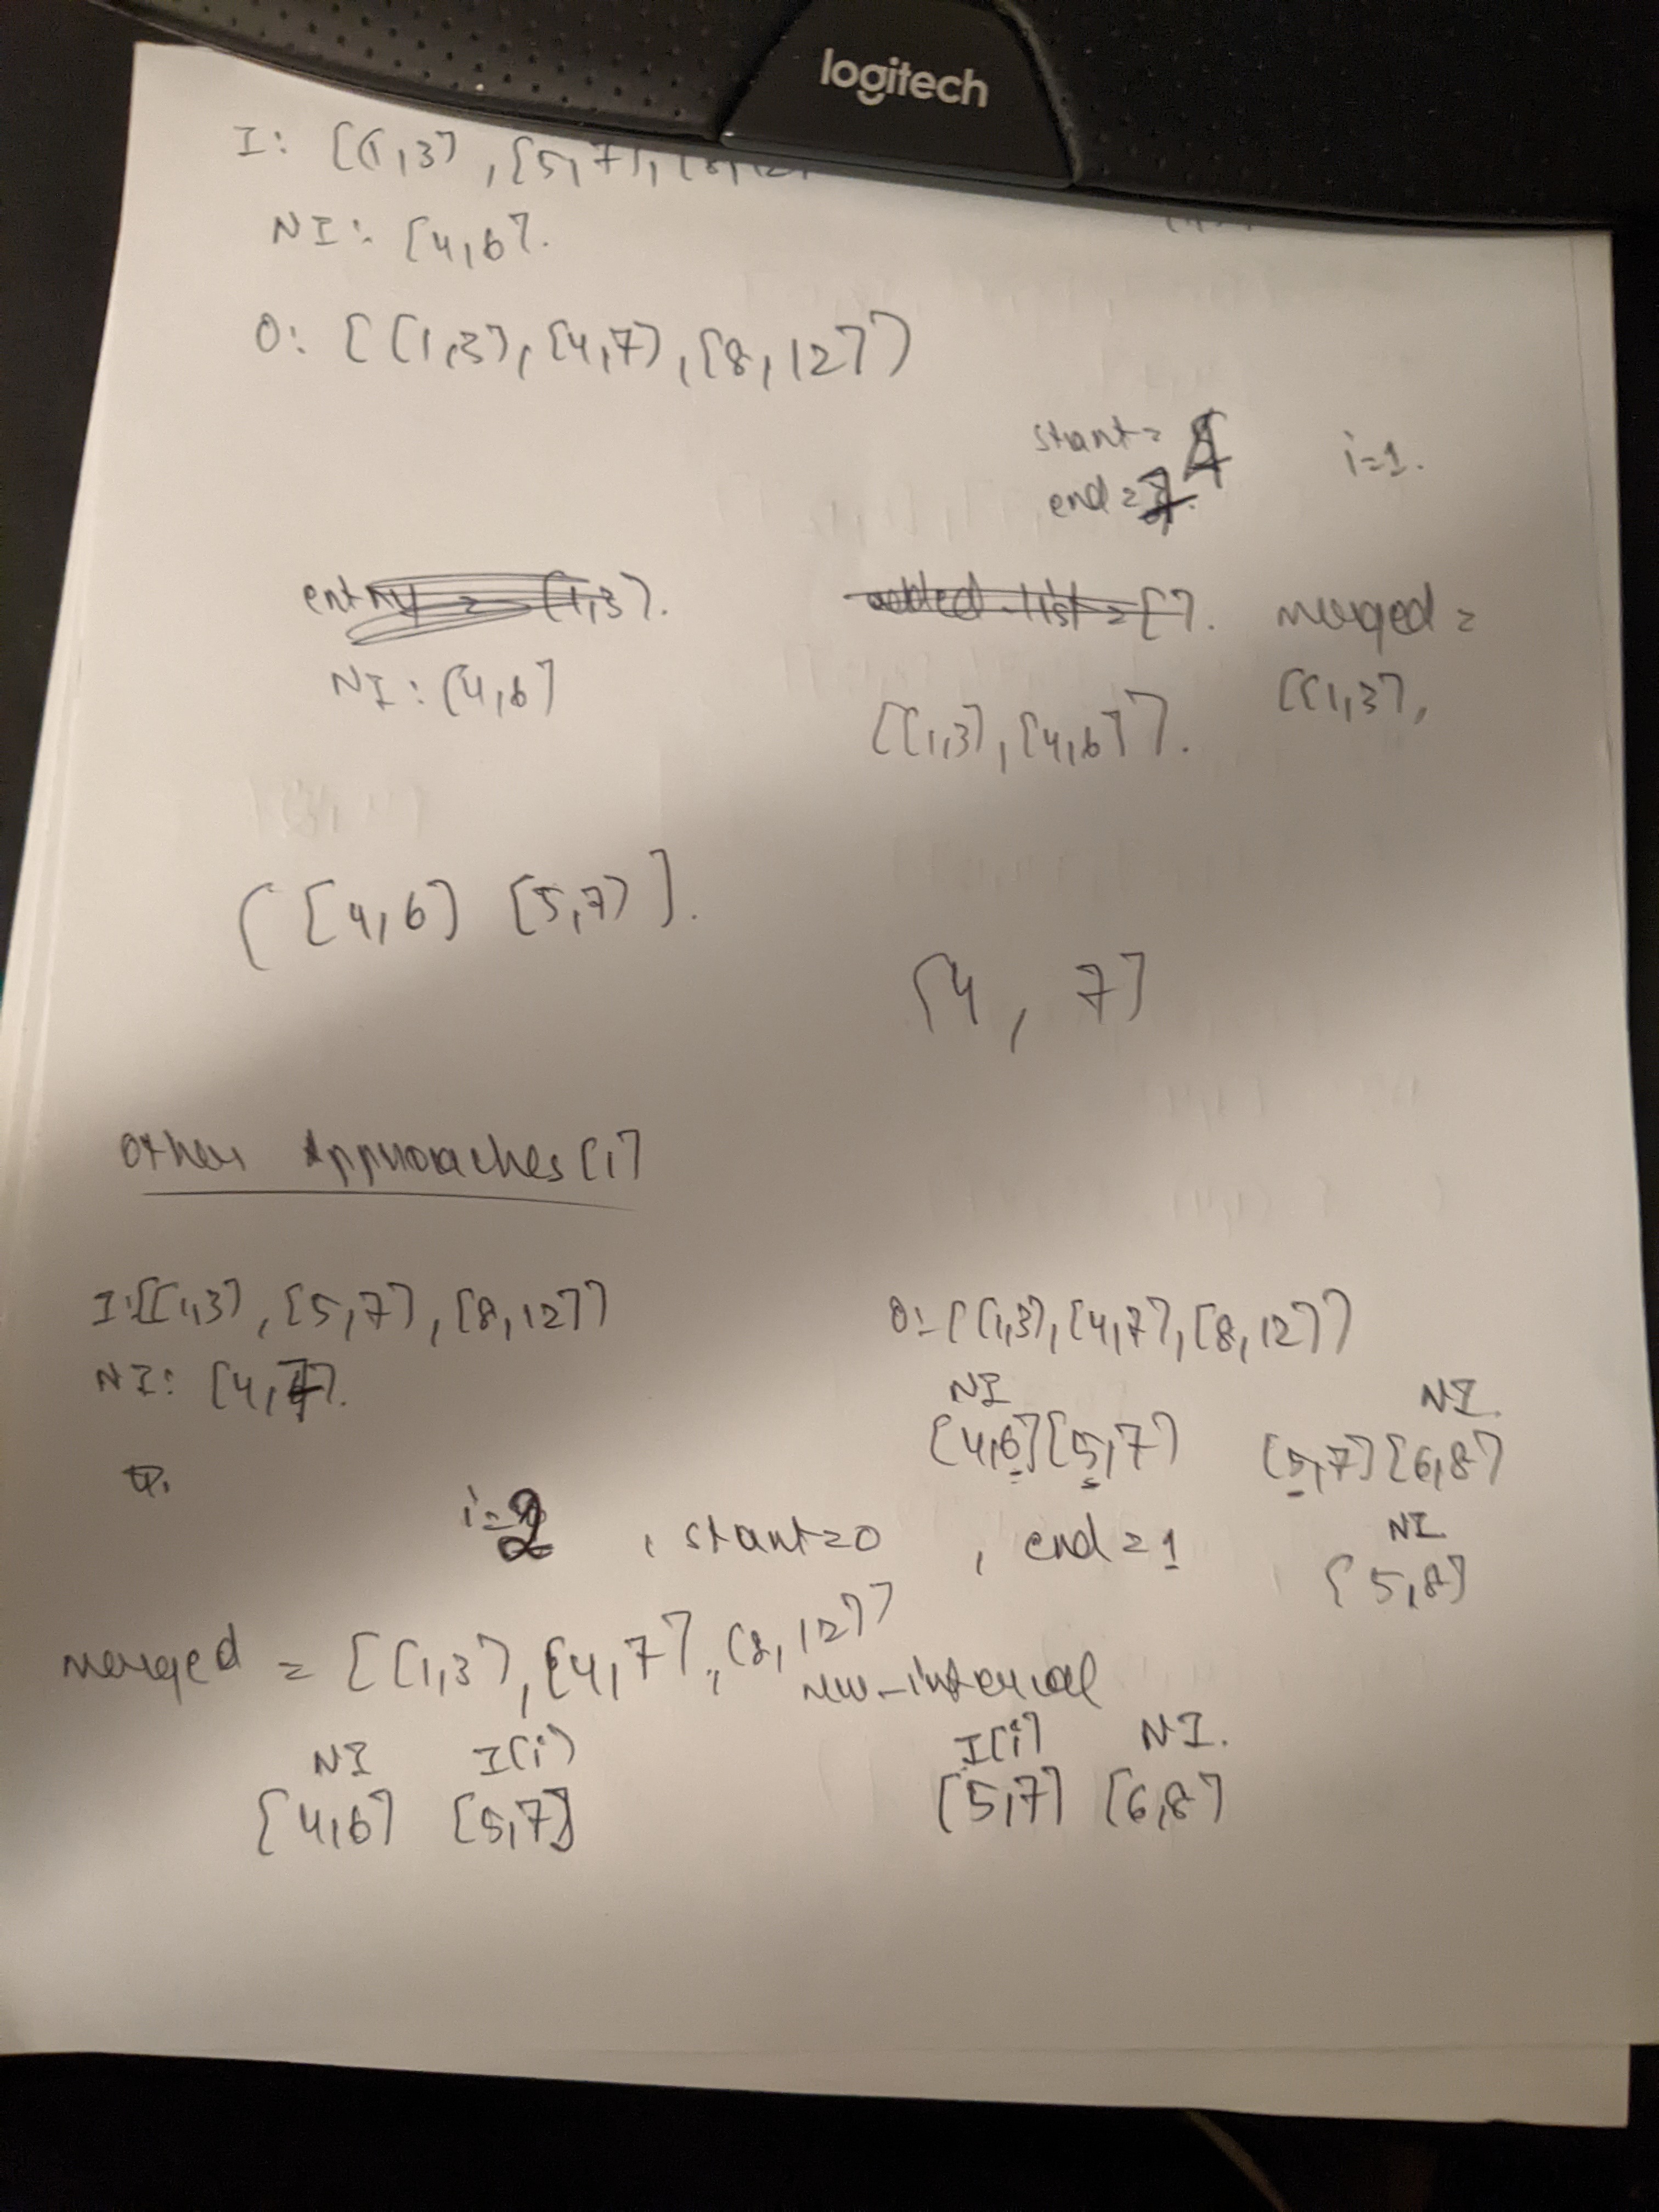 logitech
I: [[1,3], [5,7], [8,12]
NI: [4,6].
O: [[1,3], [4,7], [8,12]]
start= 4 i=1.
end = 7.
entry = [1,3]. added_list = []. merged =
NI: [4,6] [[1,3],
[[1,3], [4,6]].
[[4,6] [5,7]].
[4, 7]
Other Approaches[1]
I:[[1,3], [5,7], [8,12]] O:- [[1,3], [4,7], [8,12]]
NI: [4,7]. NI NI.
[4,6][5,7] [5,7][6,8]
i=2 , start=0 , end=1 NI
[5,8]
merged = [[1,3], [4,7], [8,12]]
new_interval
NI I[i] I[i] NI.
[4,6] [5,7] [5,7] [6,8]